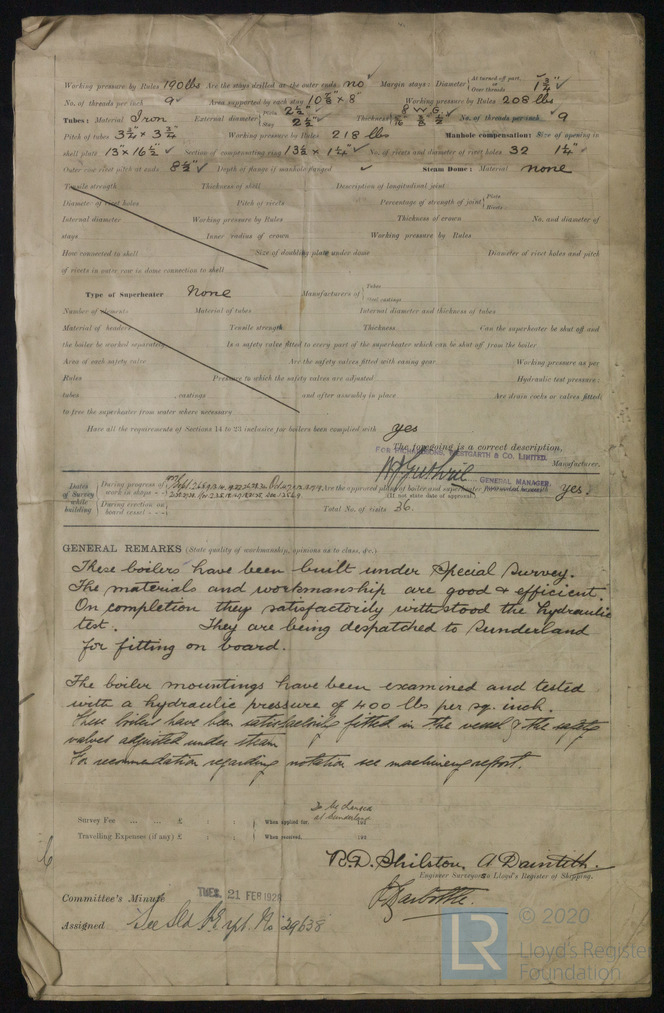 Working pressure by Rules 190 lbs Are the stays drilled at the outer ends no Margin stays: Diameter { At turned off part, or Over threads 1 3/4"
No. of threads per inch 9 Area supported by each stay 10 5/8" x 8" Working pressure by Rules 208 lbs
Tubes: Material Iron External diameter { Plain 2 1/2" Stay 2 1/2" Thickness { 8 W.G. No. of threads per inch 9
Pitch of tubes 3 3/4" x 3 3/4" Working pressure by Rules 218 lbs Manhole compensation: Size of opening in
shell plate 13" x 16 1/2" Section of compensating ring 13 1/2" x 1 1/4" No. of rivets and diameter of rivet holes 32 1 1/4"
Outer row rivet pitch at ends 8 1/2" Depth of flange if manhole flanged Steam Dome: Material none
Tensile strength Thickness of shell Description of longitudinal joint
Diameter of rivet holes Pitch of rivets Percentage of strength of joint { Plate Rivets
Internal diameter Working pressure by Rules Thickness of crown No. and diameter of
stays Inner radius of crown Working pressure by Rules
How connected to shell Size of doubling plate under dome Diameter of rivet holes and pitch
of rivets in outer row in dome connection to shell
Type of Superheater None Manufacturers of { Tubes Steel castings
Number of elements Material of tubes Internal diameter and thickness of tubes
Material of headers Tensile strength Thickness Can the superheater be shut off and
the boiler be worked separately Is a safety valve fitted to every part of the superheater which can be shut off from the boiler
Area of each safety valve Are the safety valves fitted with easing gear Working pressure as per
Rules Pressure to which the safety valves are adjusted Hydraulic test pressure:
tubes , castings and after assembly in place Are drain cocks or valves fitted
to free the superheater from water where necessary
Have all the requirements of Sections 14 to 23 inclusive for boilers been complied with yes
The foregoing is a correct description,
FOR RICHARDSONS, WESTGARTH & CO. LIMITED.
Manufacturer.
GENERAL MANAGER.
Dates of Survey while building { During progress of work in shops - - Are the approved plans of boiler and superheater forwarded herewith yes.
(If not state date of approval.)
During erection on board vessel - - - Total No. of visits 36.
GENERAL REMARKS (State quality of workmanship, opinions as to class, &c.)
These boilers have been built under Special Survey.
The materials and workmanship are good & efficient.
On completion they satisfactorily withstood the hydraulic
test. They are being despatched to Sunderland
for fitting on board.
The boiler mountings have been examined and tested
with a hydraulic pressure of 400 lbs per sq. inch.
These boilers have been satisfactorily fitted in the vessel & the safety
valves adjusted under steam
For recommendation regarding notation see machinery report.
Survey Fee ... ... £ : : When applied for, 192
at Sunderland
Travelling Expenses (if any) £ : : When received, 192
B.D. Shilston, A. Dainteth.
Engineer Surveyors to Lloyd's Register of Shipping.
Committee's Minute TUES. 21 FEB 1928
Assigned See Sld F.E. rpt. No 29638
© 2020
LR Lloyd's Register
Foundation